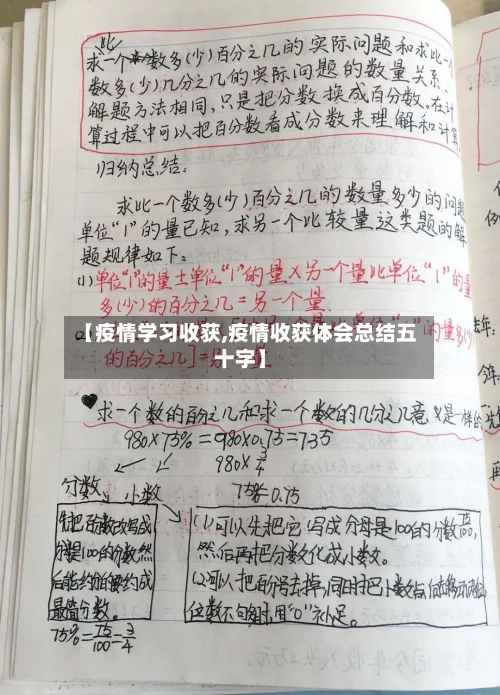 此
求一个数多(少)百分之几的实际问题和求比一个
数多(少)几分之几的实际问题的数量关系。
解题方法相同,只是把分数换成百分数。在计
算过程中可以把百分数看成分数来理解和计算
归纳总结:
求比一个数多(少)百分之几的数量多少的问题
单位“1”的量已知,求另一个比较量这类题的解
题规律如下:
(1)单位“1”的量±单位“1”的量×另一个量比单位“1”的量
多(少)的百分之几=另一个量
【疫情学习收获,疫情收获体会总结五
十字】
的百分之几]=
求一个数的百分之几和求一个数的几分之几意义是一样的
980×75%=980×0.75=735
980×3/4
分数 小数 75%=0.75
先把百分数改写成
分母是100的分数然
后能约分的要约成
最简分数。
75%=75/100=3/4
(1)可以先把它写成分母是100的分数75/100,
然后再把分数化成小数。
(2)可以把百分号去掉,同时把小数点向左移动两位
位数不够时用“0”补足。